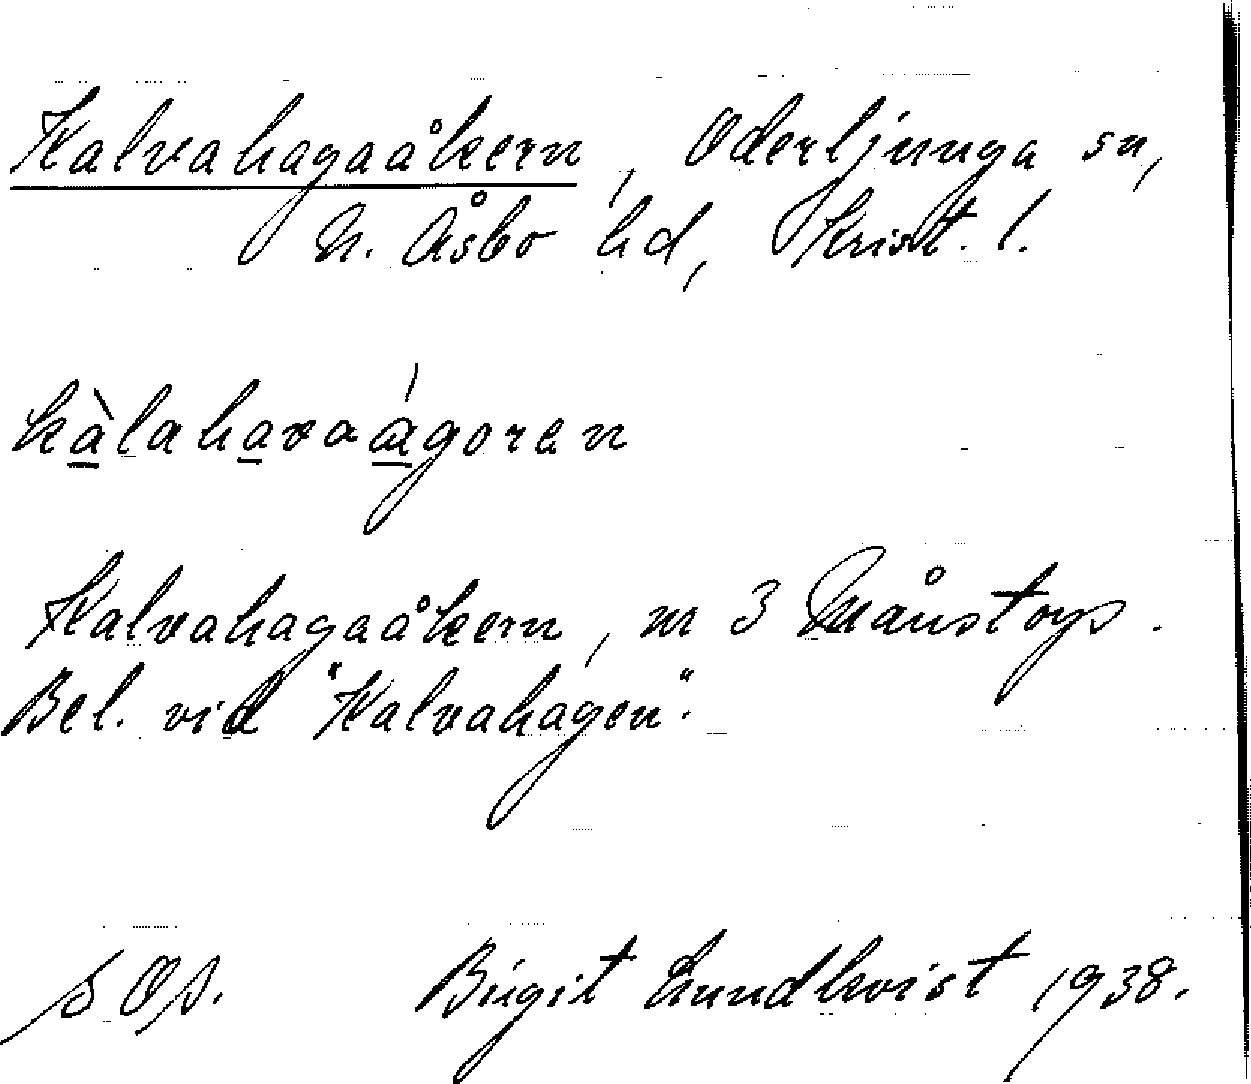 Kalvahagaåkern, Oderljunga sn,
N. Åsbo hd, Krist. l.
kàlahavaágoren
Kalvahagaåkern, nr 3 Månstorp.
Bel. vid "Kalvahagen".
Birgit Lundkvist 1938.